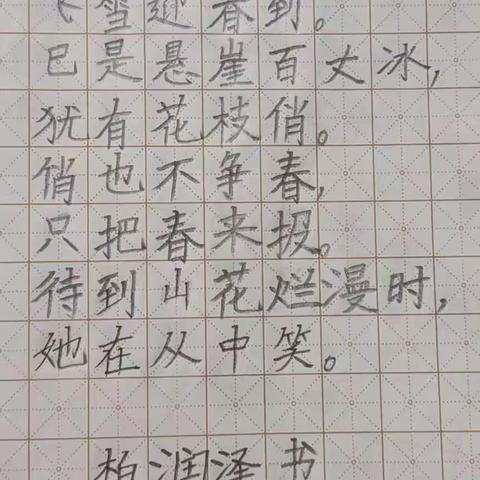 飞雪迎春到。
巳是悬崖百丈冰,
犹有花枝俏。
俏也不争春,
只把春来报。
待到山花烂漫时,
她在从中笑。
柏润泽书